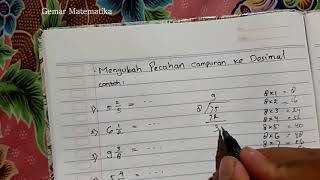 Gemar Matematika
· Mengubah Pecahan campuran ke Desimal
contoh:
1) 5 2/5 = ...
2) 6 1/2 = ...
3) 9 3/8 = ...
9
8 / 75
72
3
8 x 1 = 8
8 x 2 = 16
8 x 3 = 24
8 x 4 = 32
8 x 5 = 40
8 x 6 = 48
8 x 7 = 56